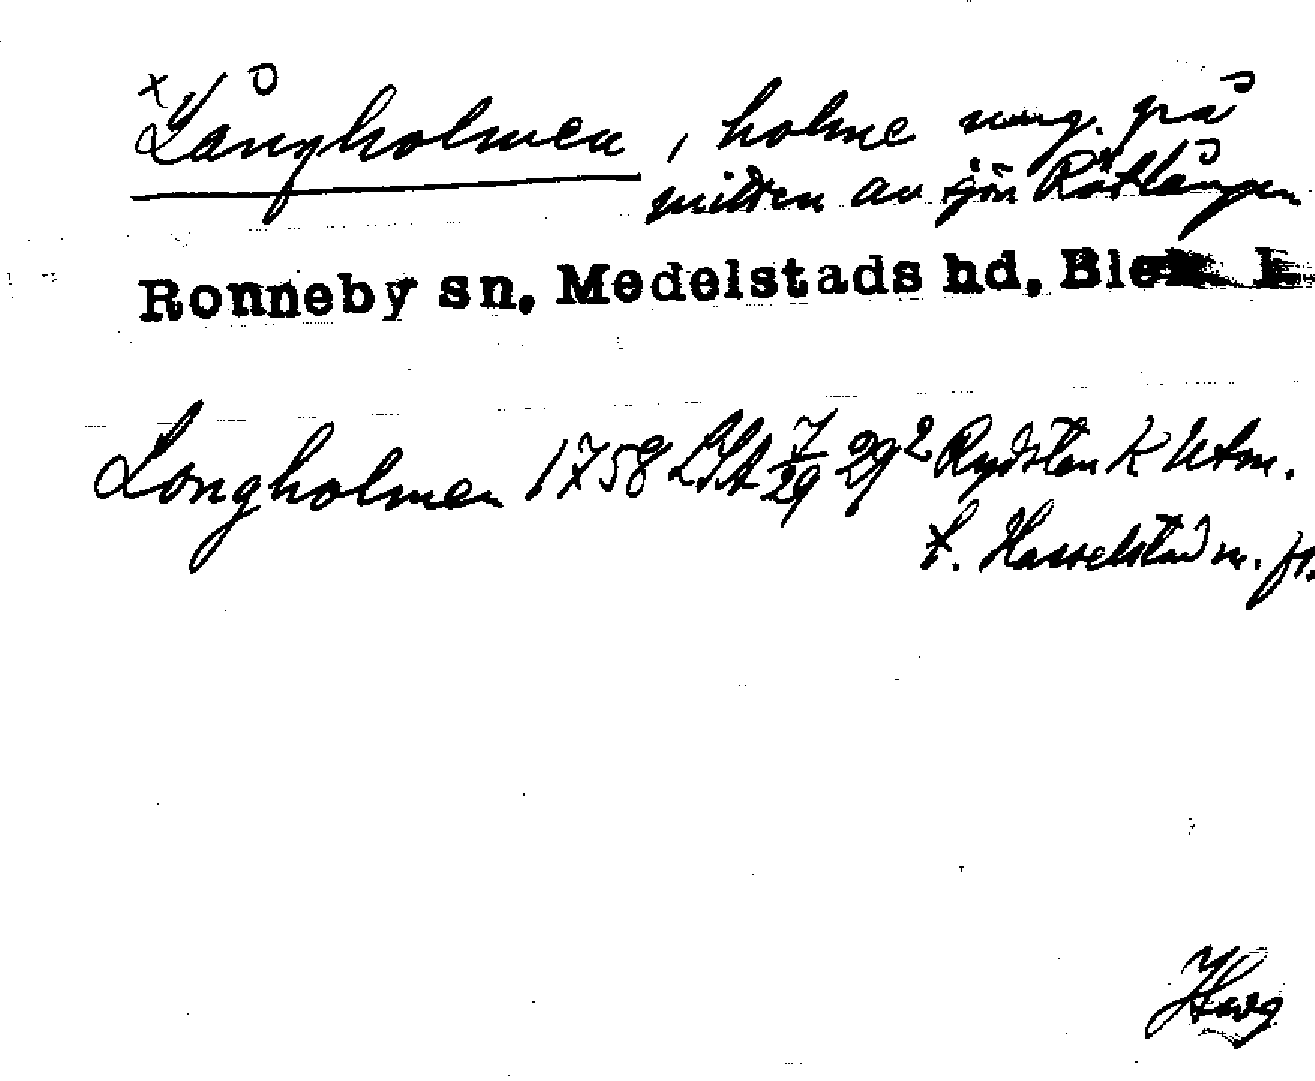 x Långholmen, holme ung. på
mitten av sjön Rötlången
Ronneby sn, Medelstads hd, Blek. l
Longholmen 1758 LSA 7/29 29² Rydslån K Utm.
t. Hasselstad m. fl.